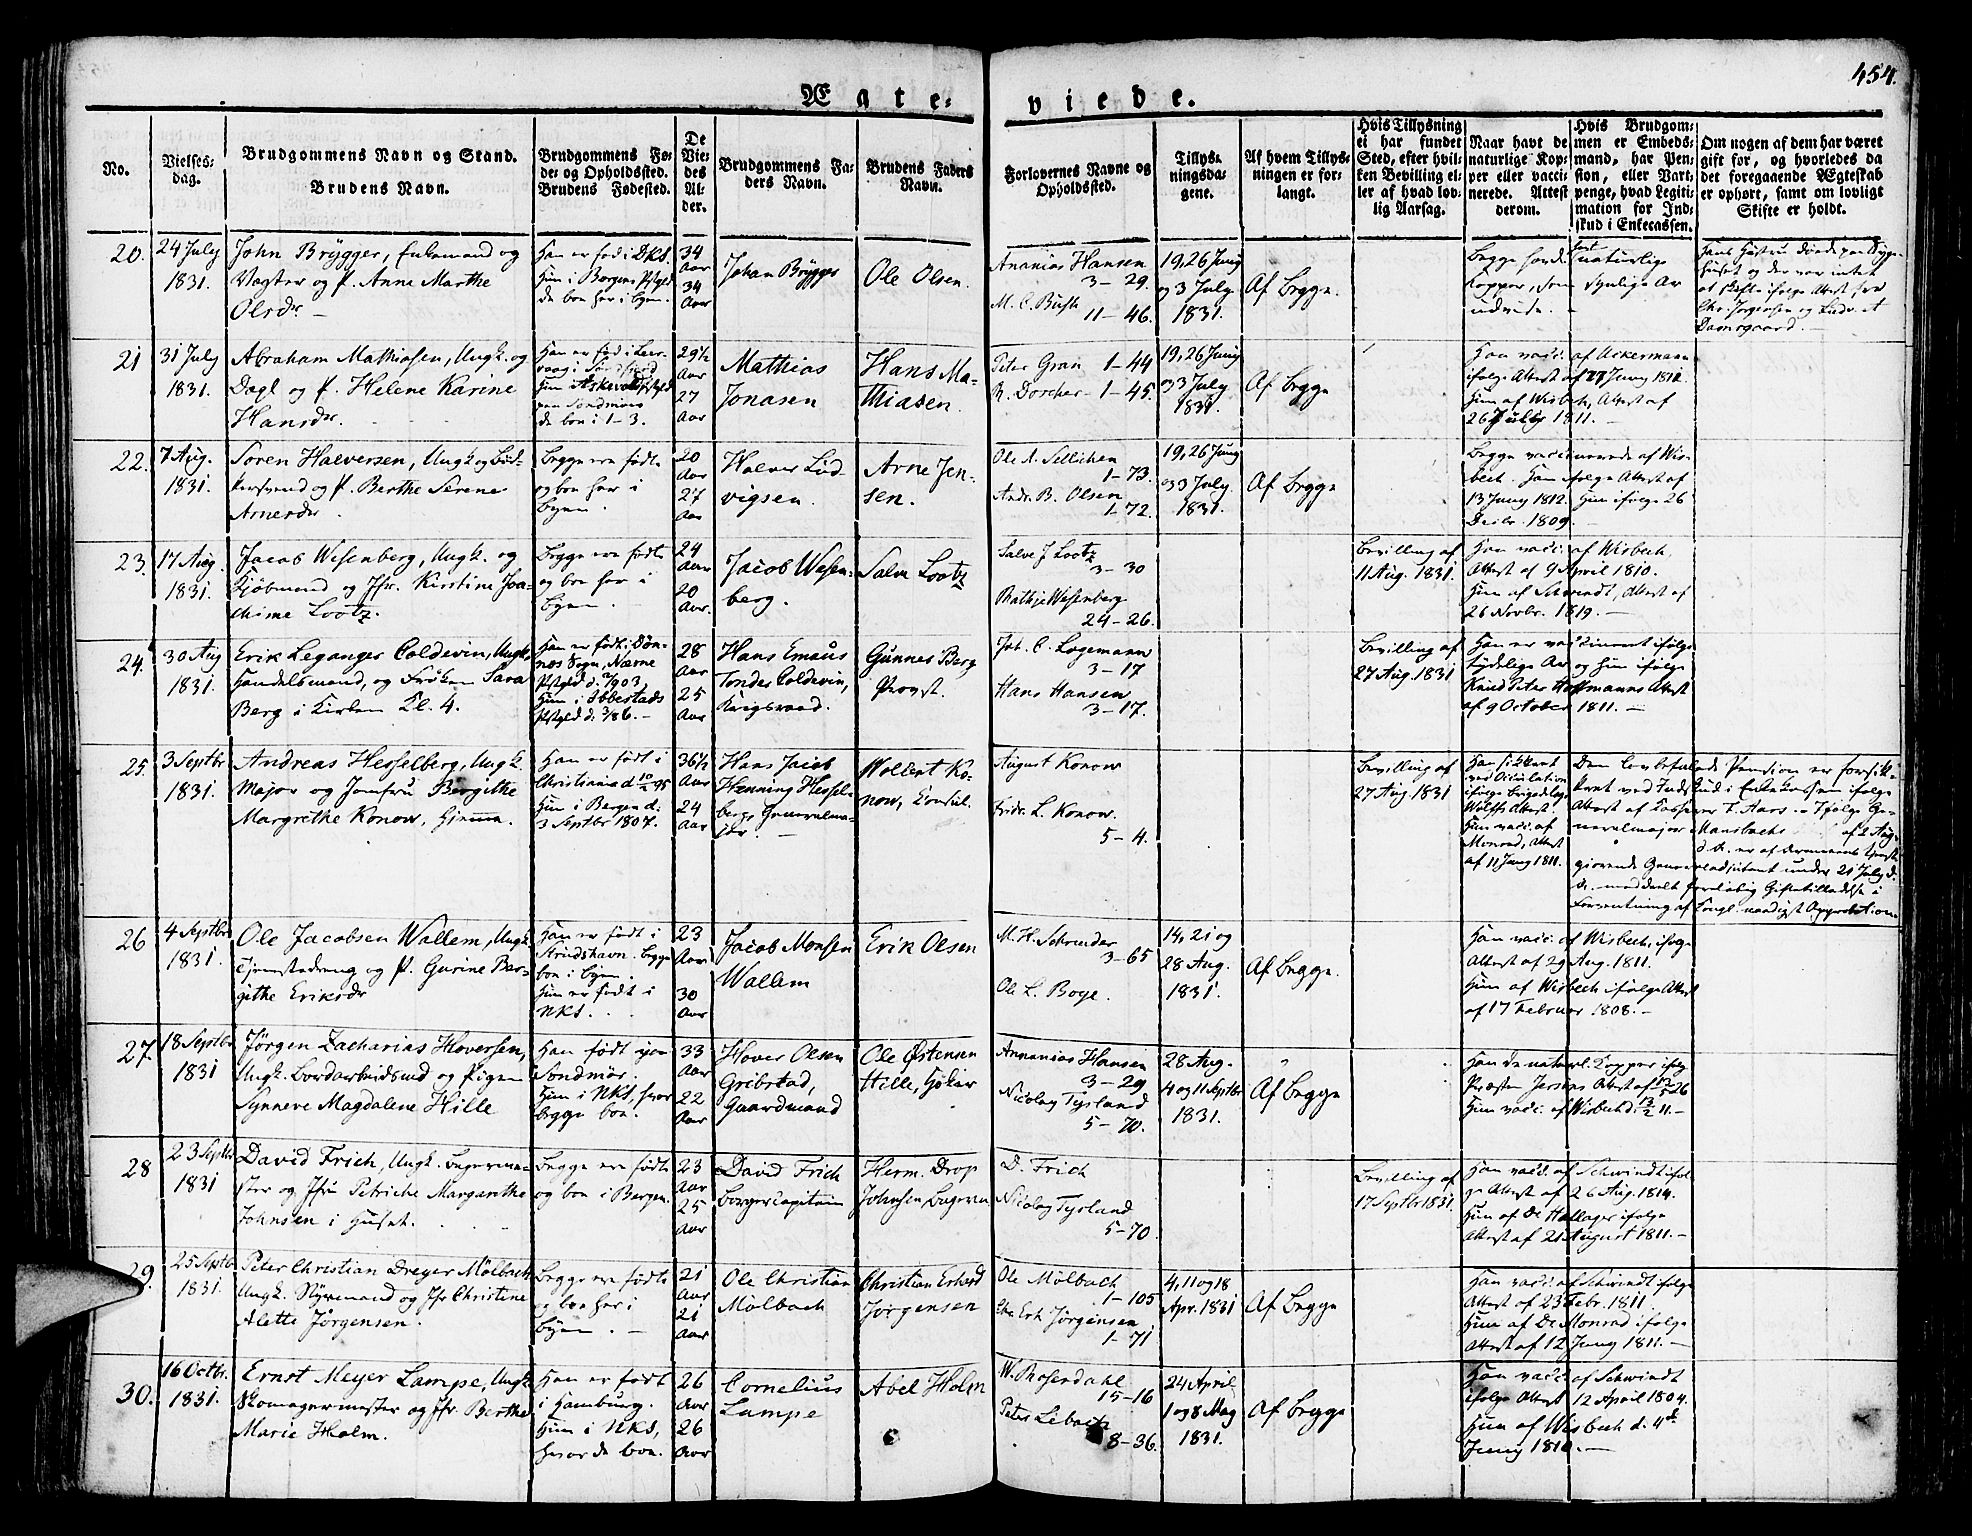 454.
Ægte- viede.
No.
Vielses-
dag.
Brudgommens Navn og Stand.
Brudens Navn.
Brudgommens Fø-
de- og Opholdssted.
Brudens Fødested.
De
Vie-
des
Al-
der.
Brudgommens Fa-
ders Navn.
Brudens Faders
Navn.
Forlovernes Navne og
Opholdssted.
Tillys-
ningsda-
gene.
Af hvem Tillys-
ningen er for-
langt.
Hvis Tillysning
ei har fundet
Sted, efter hvil-
ken Bevilling el-
ler af hvad lov-
lig Aarsag.
Naar havt de
naturlige Kop-
per eller vacci-
nerede. Attest
derom.
Hvis Brudgom-
men er Embeds-
mand, har Pen-
sion, eller Vart-
penge, hvad Legiti-
mation for Ind-
skud i Enkecassen.
Om nogen af dem har været
gift før, og hvorledes da
det foregaaende Ægteskab
er ophørt, samt om lovligt
Skifte er holdt.
20.
24 July
1831.
John Brÿgger, Enkemand og
Vægter og P. Anne Marthe
Olsdr
Han er fød i DKS.
Hun i Borgens Pstgd
de boe her i Byen.
34
Aar
34
Aar
Johan Brÿgger
Ole Olsen.
Ananias Hansen
3-29.
M. C. Bush
11-46.
19, 26 Juny
og 3 July
1831.
Af Begge.
Begge havde havt naturlige
Kopper, som synlige Ar
udvise.
21
31 July
1831.
Abraham Mathiasen, Ungk. og
Dagl og P. Helene Karine
Hansdr.
Han er fød i Leer-
vaag i Søndfjord
Hun i Askevold Pstgd
paa Søndmøre
de boe i 1-3.
29½
Aar
27
Aar
Mathias
Jonasen
Hans Ma-
thiasen.
Peter Gran 1-44
R. Dorcher 1-45.
19, 26 Juny
og 3 July
1831.
Af Begge
Han vacc. af Ackermann
ifølge Attest af 27 Juny 1812.
Hun af Wisbech, Attest af
26 July 1811.
22.
7 Aug.
1831.
Søren Halversen, Ungk og Bød-
kersvend og P. Berthe Serene
Arnesdr.
Begge ere fødte
og boe her i
Byen.
20
Aar
27
Aar
Halver Lud-
vigsen.
Arne Jen-
sen.
Ole A. Sellichen
1-73.
Andr. B. Olsen
1-72.
19, 26 Juny
og 3 July
1831.
Af Begge
Begge vaccinerede af Wis-
bech. Han ifølge Attest af
13 Juny 1812. Hun ifølge 26
Decbr. 1809.
23.
17 Aug.
1831.
Jacob Wesenberg, Ungk. og
Kjøbmand og Jfr. Kirstine Joa-
chime Lootz.
Begge ere fødte
og boe her i
Byen.
24
Aar
20
Aar.
Jacob Wesen-
berg.
Salve Lootz
Salve J Lootz
3-30
Bathje Wesenberg
24-26.
Bevilling af
11 Aug. 1831.
Han vacc. af Wisbech,
Attest af 9 April 1810.
Hun af Schwindt, Attest af
26 Novbr. 1819.
24.
30 Aug
1831.
Erik Leganger Coldevin, Ungk,
Handelsmand, og Frøken Sara
Berg i Kirken Kl. 4.
Han er født i Døn-
næs Sogn, Nærne
Pstgld d. 7/903.
Hun i Ibbestads
Pstgld d. 3/86.
28
Aar
25
Aar
Hans Emaus
Tønder Coldevin,
Krigsraad.
Gunnes Berg,
Provst.
Joh. C. Logemann
3-17
Hans Hansen
3-17.
Bevilling af
27 Aug. 1831
Han er vaccineret ifølge
tydelige Ar og Hun ifølge
Knud Peter Hoffmanns Attest
af 9 October 1811.
25.
3 Septbr
1831.
Andreas Hesselberg, Ungk.
Major og Jomfru Bergithe
Margrethe Konow, Hjemme.
Han er født i
Christiania d 10/2 95
Hun i Bergen d.
3 Septbr 1807.
36½
Aar
24
Aar
Hans Jacob
Henning Hessel-
berg, Generalma-
jor.
Wollert Ko-
now, Consul.
August Konow
Fridr. L. Konow.
5-4.
Bevilling af
27 Aug. 1831
Han sikkret
ved Oculation
ifølge Brigadelæge
Wolffs Attest
Hun vacc. af
Monrad, Attest
af 11 Juny 1811.
Den lovbefalede Pension er forsik-
kret ved Indskud i Enkekassen ifølge
Attest af Kasserer T. Aars. Ifølge Ge-
neralmajor Mansbachs af 2 Aug.
26
4 Septbr
1831.
Ole Jacobsen Wallem, Ungk
Tjenestedreng og P. Gurine Ber-
githe Eriksdr
Han er født i
Strudshavn. Begge
boe i Byen.
Hun er født i
NKS.
23
Aar
30
Aar
Jacob Monsen
Wallem
Erik Olsen
M. H. Schrøder
3-65
Ole L. Boge.
14, 21 og
28 Aug.
1831.
Af Begge.
Han vacc. af Wisbech, ifølge
Attest af 29 Aug. 1811.
Hun af Wisbech ifølge Attest
af 17 Februar 1808.
27.
18 Septbr
1831
Jørgen Zacharias Hoversen,
Ungk. Bordarbeidsmd og Pigen
Synneve Magdalene Hille
Han født paa
Søndmør.
Hun i NKS, hvor
begge boe.
33
Aar
22
Aar
Hover Olsen
Gribstad,
Gaardmand
Ole Østensen
Hille, Høker
Annanias Hansen
3-29
Nicolay Tysland
5-70.
28 Aug.
4 og 11 Septbr
1831.
Af Begge
Han de naturl. Kopper ifølge
Præsten Jersins Attest af 17/5 26
Hun vacc. af Wisbech d. 13/2 11.
28
23 Septbr
1831
David Frich, Ungk. Bagerme-
ster og Jfru Petriche Margarethe
Johnsen i Huset.
Begge ere fødte
og boe i Bergen.
23
Aar
25
Aar
David Frich
Borgercapitain
Herm. Drop
Johnsen, Bager
D. Frich
Nicolay Tysland
5-70
Bevilling af
17 Septbr 1831.
Han vacc. af Schwindt iføl-
ge Attest af 26 Aug. 1814.
Hun af De Hallager ifølge
Attest af 21 August 1811.
29.
25 Septbr
1831.
Peter Christian Dreyer Mölbach
Ungk. Styrmand og Jfr Christine
Alette Jørgensen.
Begge ere fødte
og boe her i
Byen.
21
Aar
21
Aar
Ole Christian
Mölbach
Christian Erhard
Jørgensen
Ole Mölbach
1-105
Chr Erh Jørgensen
1-71
4, 11 og 18
Apr. 1831
Af Begge
Han vacc. af Schwindt ifølge
Attest af 23 Febr. 1811.
Hun af De Monrad ifølge
Attest af 12 Juny 1811.
30.
16 Octbr.
1831.
Ernst Meyer Lampe, Ungk
Skomagermester og Jfr. Berthe
Marie Holm.
Han er født
i Hamburg.
Hun i NKS,
hvor de boe.
26
Aar
26
Aar
Cornelius
Lampe
Abel Holm
W. Rosendahl
15-16
Peter Libach
8-36.
24 April
1 og 8 May
1831.
Af Begge
Han vacc. af Schwindt
ifølge Attest 12 April 1804.
Hun af Wisbech d. 4de
Juny 1810.